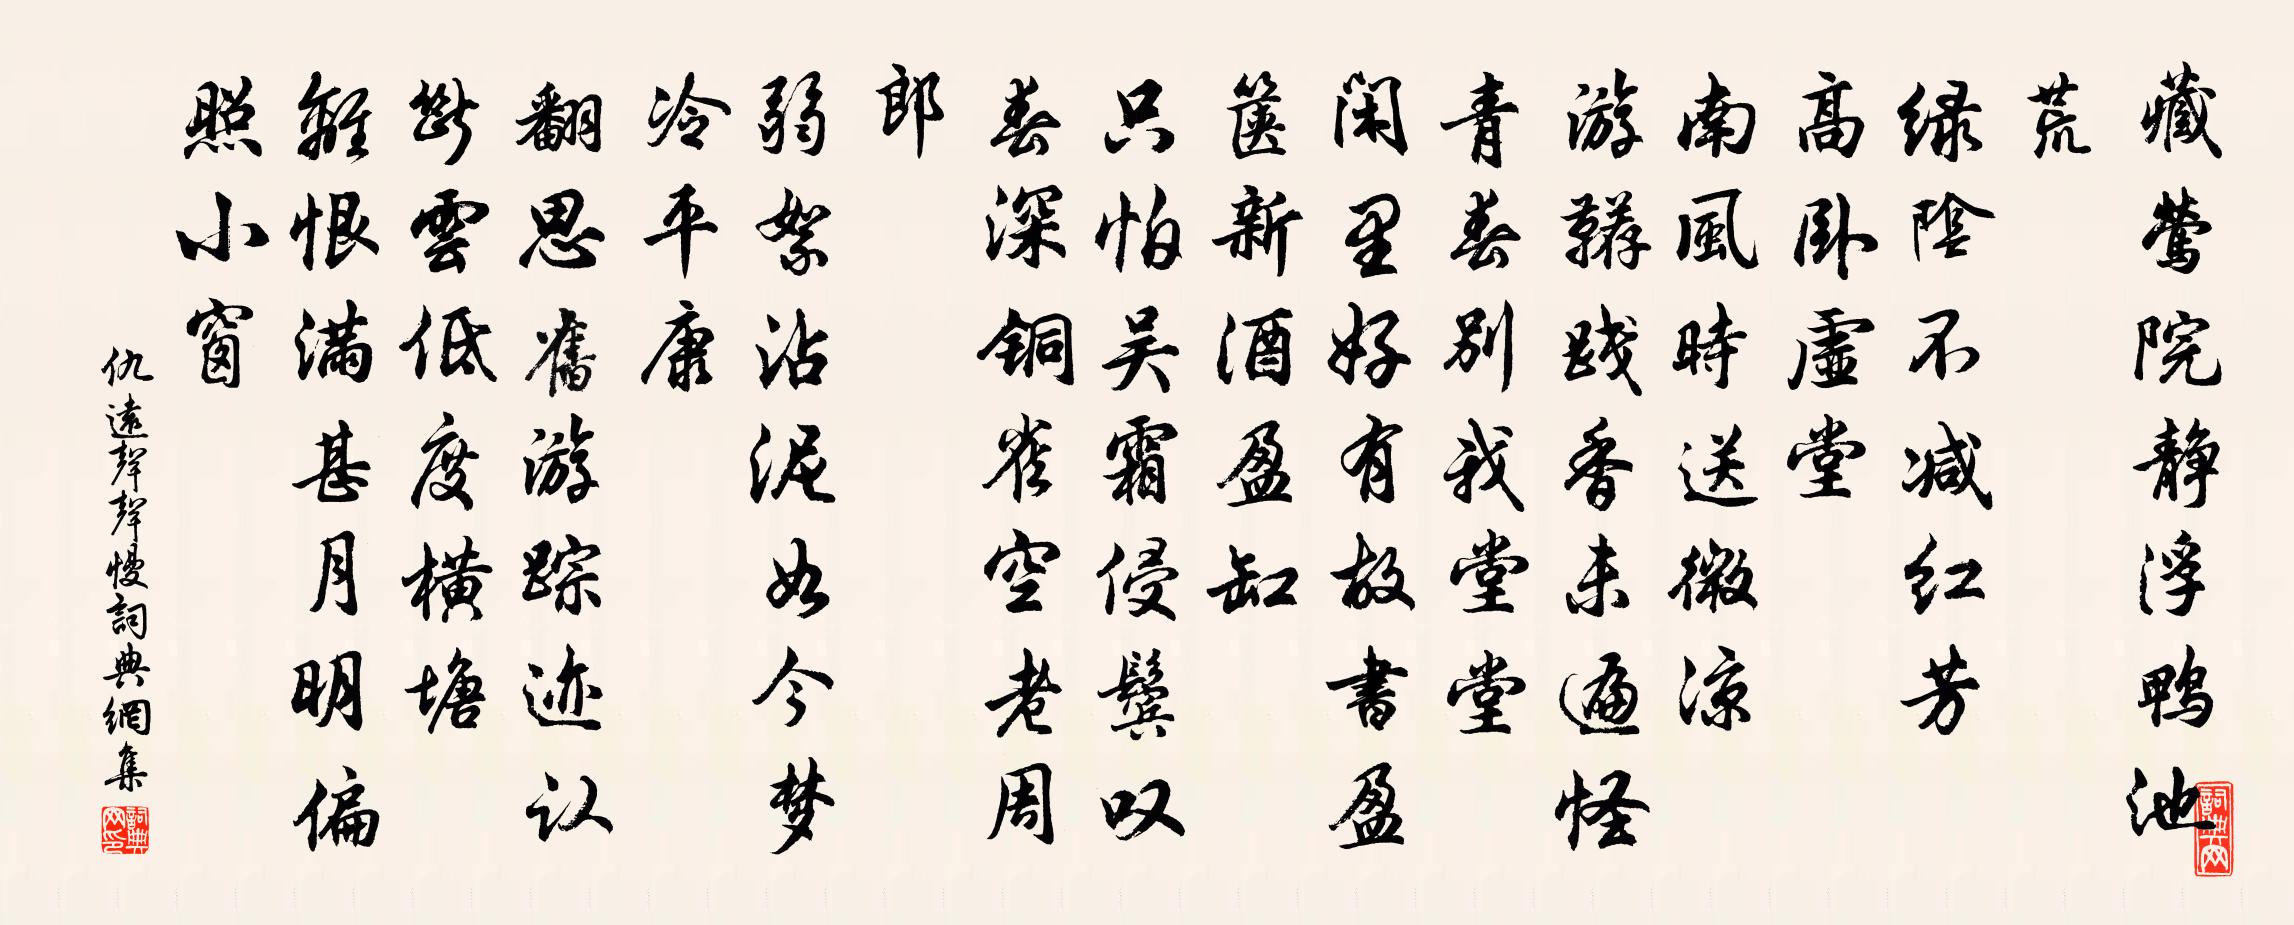 藏莺院静浮鸭池
荒
绿陰不减红芳
高卧虚堂
南風時送微凉
游韉践香未遍怪
青春别我堂堂
闲里好有故書盈
箧新酒盈缸
只怕吴霜侵鬓叹
春深铜雀空老周
郎
弱絮沾泥如今梦
冷平康
翻思舊游踪迹认
断雲低度横塘
離恨满甚月明偏
照小窗
仇遠聲聲慢詞典網集
詞典网
詞典网印